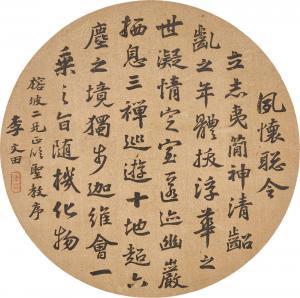 夙懷聡令
立志夷簡神清齠
齔之年體拔浮華之
世凝情定室匿迹幽巖
栖息三禪巡遊十地超六
塵之境獨步迦維會一
乘之旨隨機化物
榕坡二兄正臨聖教序
李文田